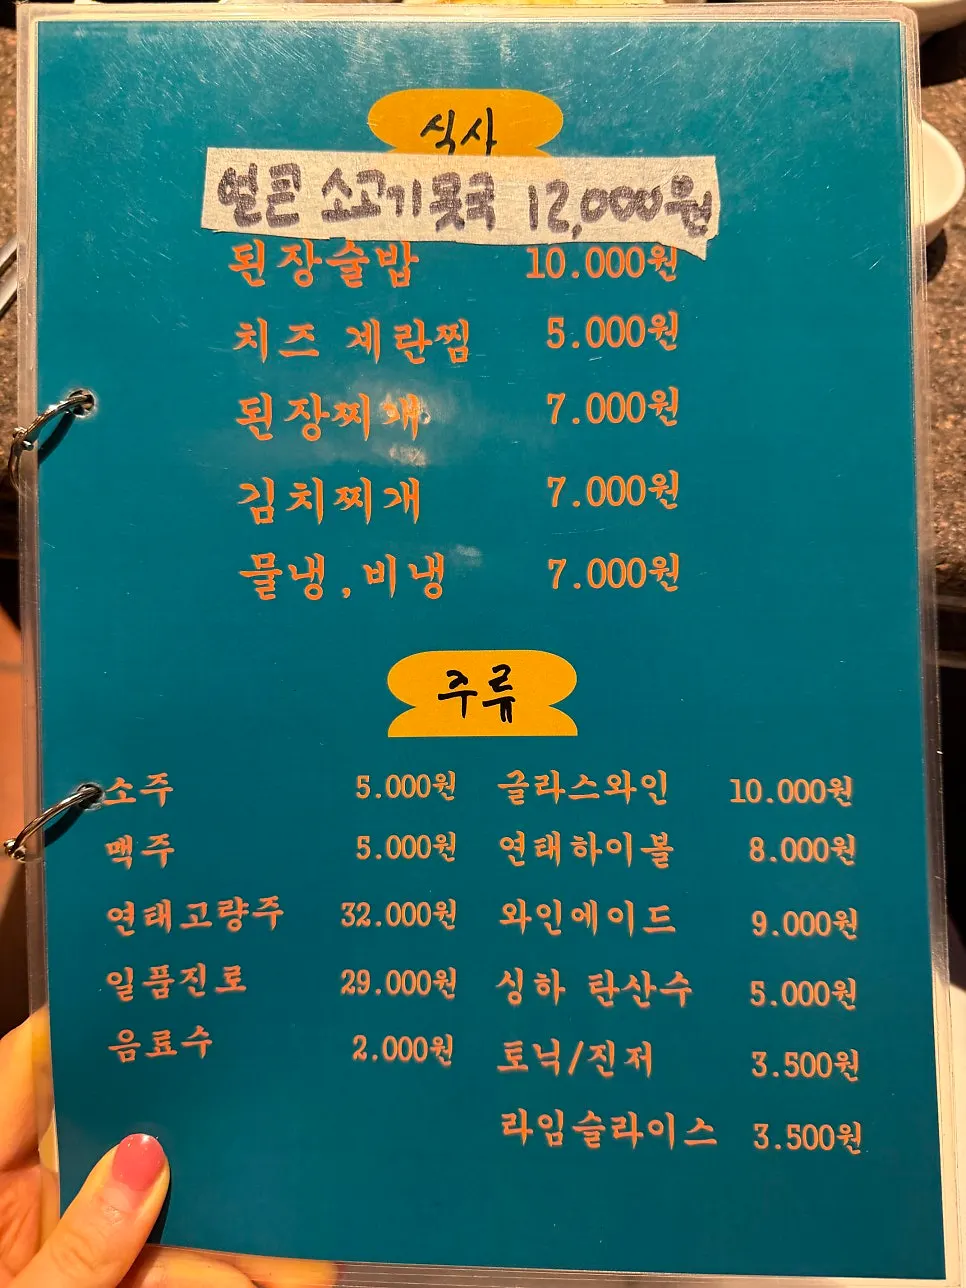 식사
얼큰 소고기뭇국 12,000원
된장술밥 10.000원
치즈 계란찜 5.000원
된장찌개 7.000원
김치찌개 7.000원
물냉,비냉 7.000원
주류
소주 5.000원 글라스와인 10.000원
맥주 5.000원 연태하이볼 8.000원
연태고량주 32.000원 와인에이드 9.000원
일품진로 29.000원 싱하 탄산수 5.000원
음료수 2.000원 토닉/진저 3.500원
라임슬라이스 3.500원